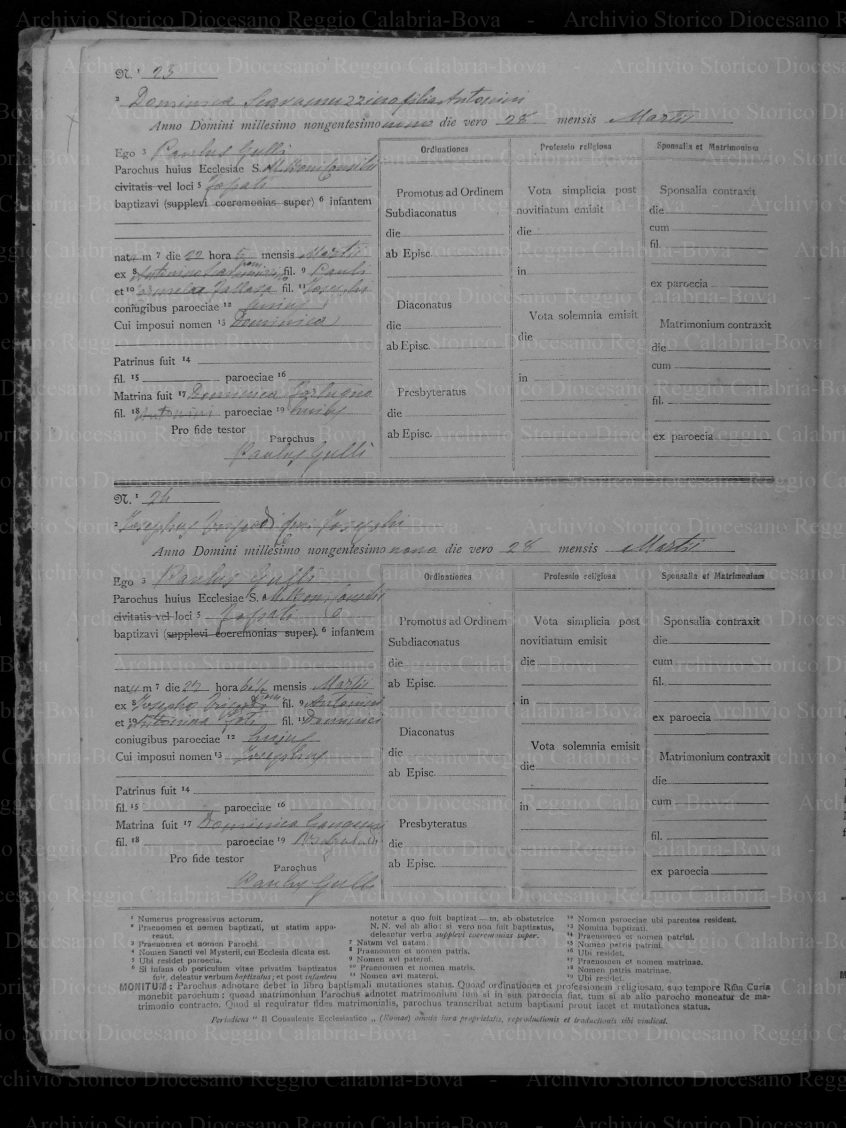 Archivio Storico Diocesano Reggio Calabria-Bova - Archivio Storico Diocesano Reggio Calabria-Bova
N.º 25
² Dominica Scaramuzzino filia Antonini
Anno Domini millesimo nongentesimo nono die vero 28 mensis Martii
Ego ³ Paulus Gullì
Parochus huius Ecclesiae S. M. Boni Consilii
civitatis vel loci ⁵
baptizavi (supplevi coeremonias super) ⁶ infantem
nata m ⁷ die 22 hora mensis Martii
ex ⁸ Antonino fil. ⁹ Pauli
et ¹⁰ fil. ¹¹ Josephi
coniugibus paroeciae ¹² hujus
Cui imposui nomen ¹³ Dominica
Patrinus fuit ¹⁴
fil. ¹⁵ paroeciae ¹⁶
Matrina fuit ¹⁷ Dominica
fil. ¹⁸ Antonini paroeciae ¹⁹ hujus
Pro fide testor
Parochus
Paulus Gullì
Ordinationes
Promotus ad Ordinem
Subdiaconatus
die
ab Episc.
Diaconatus
die
ab Episc.
Presbyteratus
die
ab Episc.
Professio religiosa
Vota simplicia post
novitiatum emisit
die
in
Vota solemnia emisit
die
in
Sponsalia et Matrimonium
Sponsalia contraxit
die
cum
fil.
ex paroecia
Matrimonium contraxit
die
cum
fil.
ex paroecia
N.º 26
² Josephus Josephi
Anno Domini millesimo nongentesimo nono die vero 28 mensis Martii
Ego ³ Paulus Gullì
Parochus huius Ecclesiae S. ⁴ M. Boni Consilii
civitatis vel loci ⁵
baptizavi (supplevi coeremonias super) ⁶ infantem
natum ⁷ die 27 hora mensis Martii
ex ⁸ Josepho fil. ⁹ Antonini
et ¹⁰ Antonina fil. ¹¹ Dominici
coniugibus paroeciae ¹² hujus
Cui imposui nomen ¹³ Josephus
Patrinus fuit ¹⁴
fil. ¹⁵ paroeciae ¹⁶
Matrina fuit ¹⁷ Dominica
fil. ¹⁸ paroeciae ¹⁹
Pro fide testor
Parochus
Paulus Gullì
Ordinationes
Promotus ad Ordinem
Subdiaconatus
die
ab Episc.
Diaconatus
die
ab Episc.
Presbyteratus
die
ab Episc.
Professio religiosa
Vota simplicia post
novitiatum emisit
die
in
Vota solemnia emisit
die
in
Sponsalia et Matrimonium
Sponsalia contraxit
die
cum
fil.
ex paroecia
Matrimonium contraxit
die
cum
fil.
ex paroecia
¹ Numerus progressivus actorum.
² Praenomen et nomen baptizati, ut statim appareat.
³ Praenomen et nomen Parochi.
⁴ Nomen Sancti vel Mysterii, cui Ecclesia dicata est.
⁵ Ubi residet paroecia.
⁶ Si infans ob periculum vitae privatim baptizatus
fuit, deleatur verbum baptizatus; et post infantem
notetur a quo fuit baptizat—m, ab obstetrice
N. N. vel ab alio: si vero non fuit baptizatus,
deleantur verba supplevi coeremonias super.
⁷ Natum vel natam.
⁸ Praenomen et nomen patris.
⁹ Nomen avi paterni.
¹⁰ Praenomen et nomen matris.
¹¹ Nomen avi materni.
¹² Nomen paroeciae ubi parentes resident.
¹³ Nomina baptizati.
¹⁴ Praenomen et nomen patrini.
¹⁵ Nomen patris patrini.
¹⁶ Ubi residet.
¹⁷ Praenomen et nomen matrinae.
¹⁸ Nomen patris matrinae.
¹⁹ Ubi residet.
MONITUM: Parochus adnotare debet in libro baptismali mutationes status. Quoad ordinationes et professionem religiosam, suo tempore Rma Curia
monebit parochum: quoad matrimonium Parochus adnotet matrimonium tum si in sua paroecia fiat, tum si ab alio parocho moneatur de matrimonio
contracto. Quod si requiratur fides matrimonialis, parochus transcribat actum baptismi prout iacet et mutationes status.
Periodicus "Il Consulente Ecclesiastico" (Romae) omnia iura proprietatis, reproductionis et traductionis sibi vindicat.